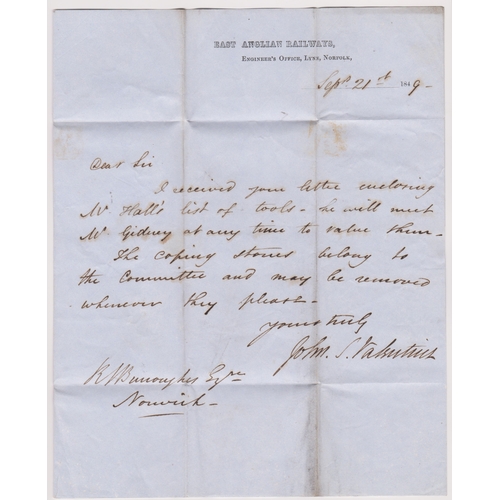 EAST ANGLIAN RAILWAYS,
ENGINEER'S OFFICE, LYNN, NORFOLK,
Sepr 21st 1849-
Dear Sir
I received your letter enclosing
Mr Hall's list of tools - he will meet
Mr Gidney at any time to value them -
The coping stones belong to
the Committee and may be removed
whenever they please -
yours truly
John S. Valentine
Burroughes Esqre
Norwich -